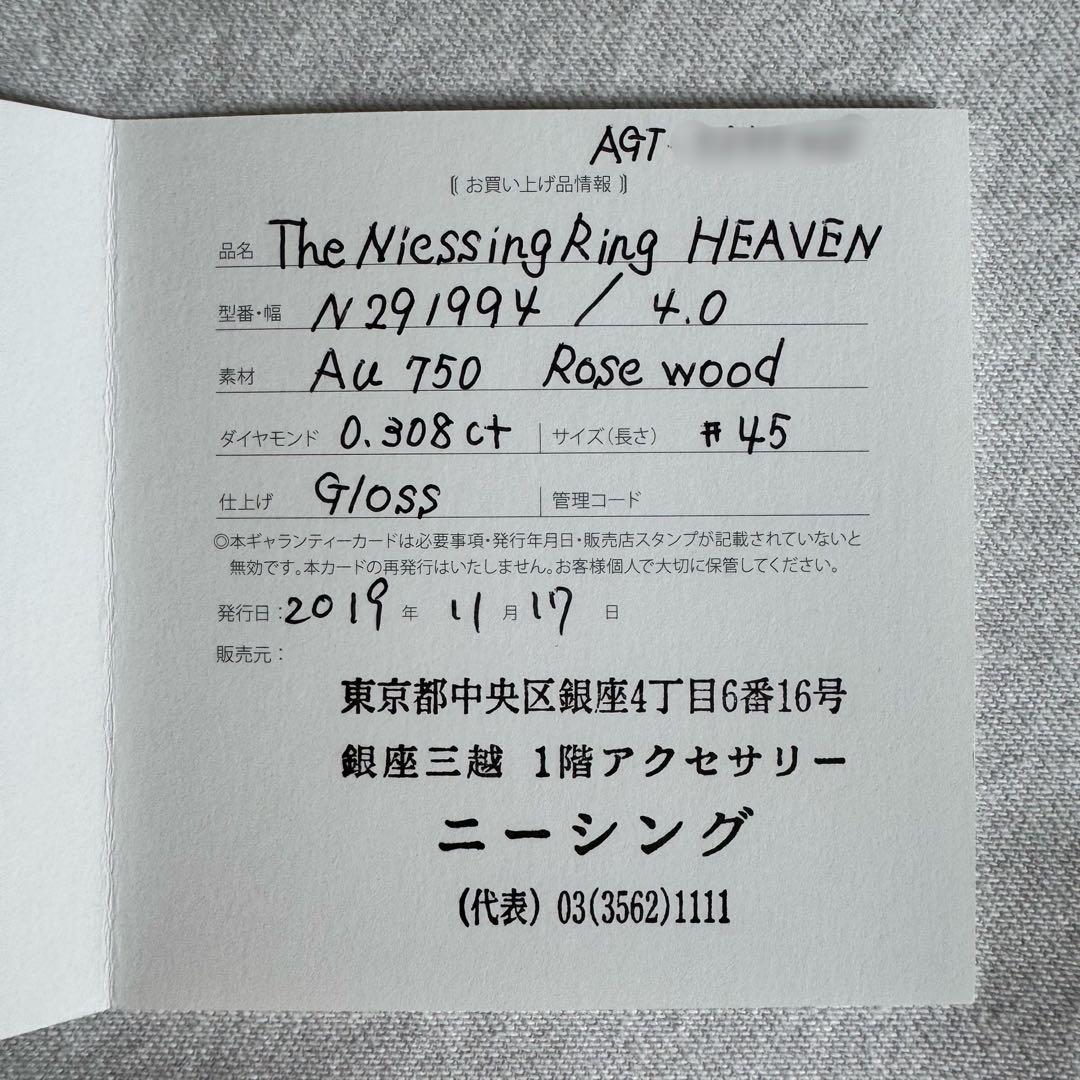 AGT
〔 お買い上げ品情報 〕
品名 The Niessing Ring HEAVEN
型番・幅 N291994 / 4.0
素材 Au 750 Rose wood
ダイヤモンド 0.308ct サイズ(長さ) #45
仕上げ Gloss 管理コード
◎本ギャランティーカードは必要事項・発行年月日・販売店スタンプが記載されていないと
無効です。本カードの再発行はいたしません。お客様個人で大切に保管してください。
発行日：2019 年 11 月 17 日
販売元：
東京都中央区銀座4丁目6番16号
銀座三越 1階アクセサリー
ニーシング
(代表) 03(3562)1111